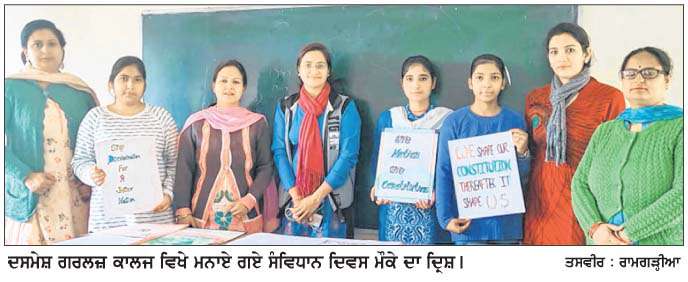 STOP
Discrimination
For
A
Better
Nation
One
Nation
One
Constitution
WE SHAPE OUR
CONSTITUTION
THEREAFTER IT
SHAPE US
ਦਸਮੇਸ਼ ਗਰਲਜ਼ ਕਾਲਜ ਵਿਖੇ ਮਨਾਏ ਗਏ ਸੰਵਿਧਾਨ ਦਿਵਸ ਮੌਕੇ ਦਾ ਦ੍ਰਿਸ਼। ਤਸਵੀਰ : ਰਾਮਗੜ੍ਹੀਆ